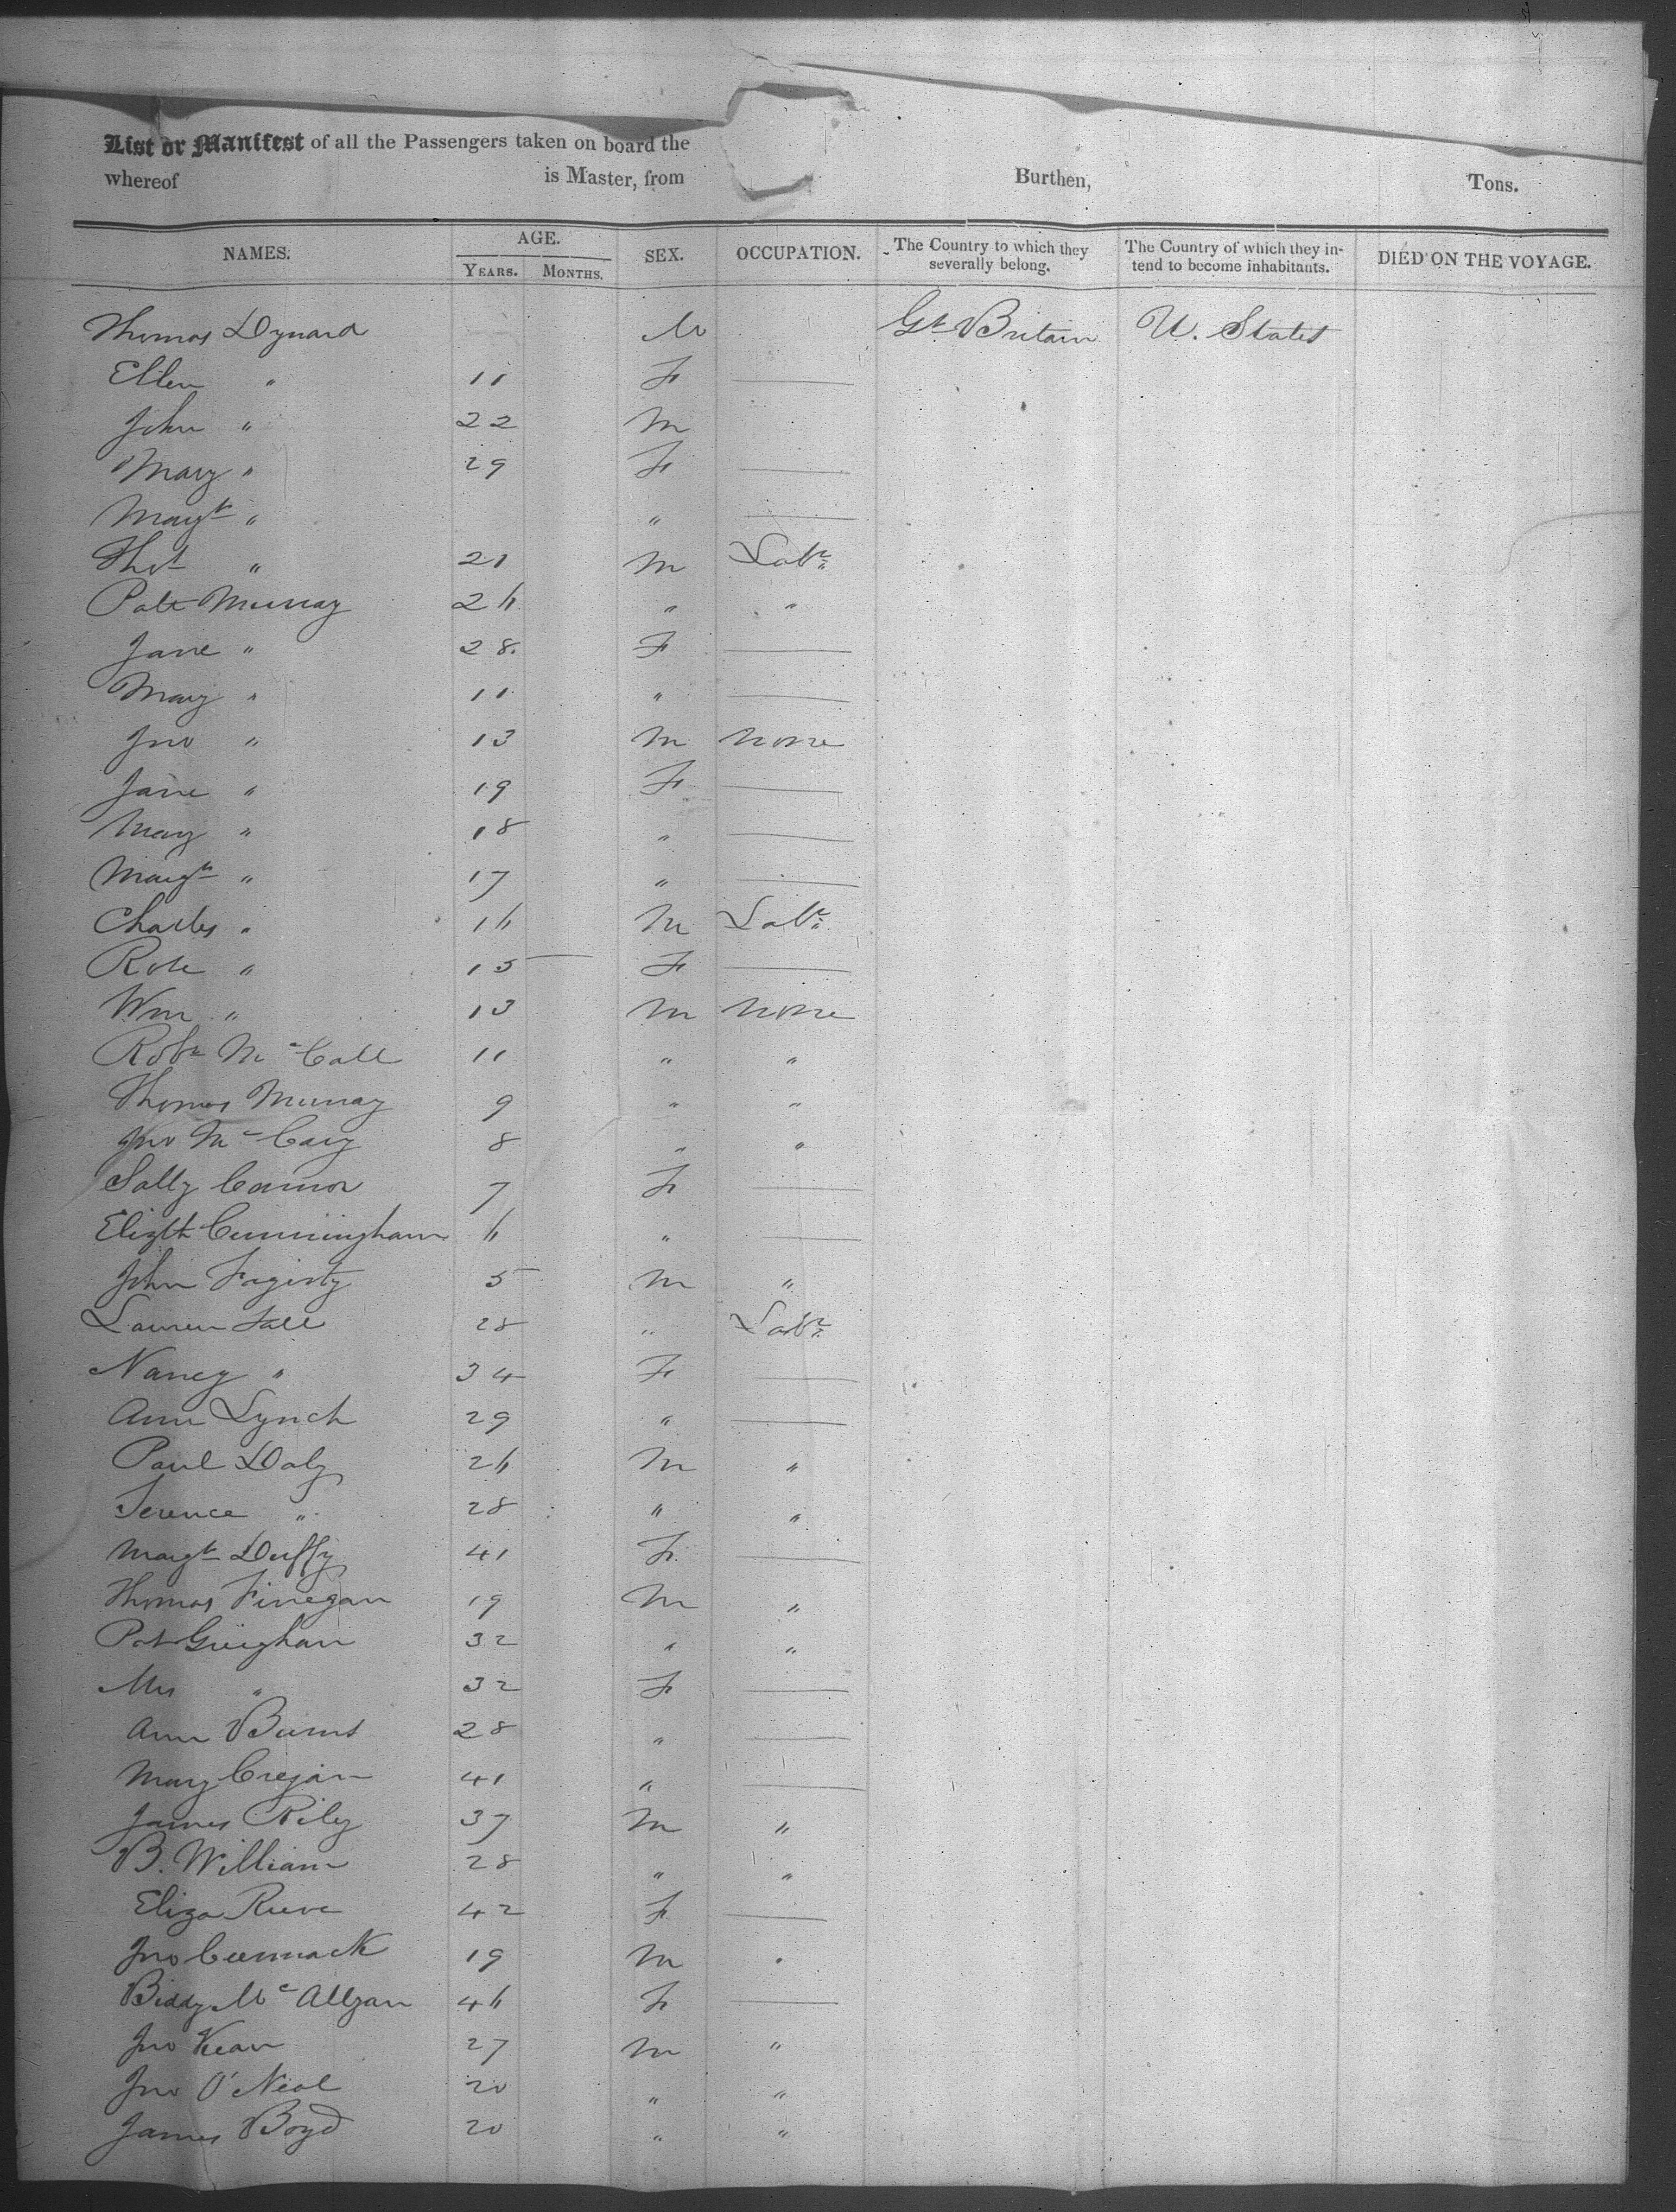 List or Manifest of all the Passengers taken on board the
whereof is Master, from Burthen, Tons.
NAMES. AGE. SEX. OCCUPATION. The Country to which they severally belong. The Country of which they intend to become inhabitants. DIED ON THE VOYAGE.
YEARS. MONTHS.
Thomas Dynard M Gt Britain U. States
Ellen " 11 F —
John " 22 M
Mary " 29 F —
Margt " " —
Thos " 21 M Labr
Patt Murray 26 " "
Jane " 28 F —
Mary " 11 " —
Jno " 13 M None
Jane " 19 F —
Mary " 18 " —
Margt " 17 " —
Charles " 16 M Labr
Rose " 15 F —
Wm " 13 M None
Robt McCall 11 " "
Thomas Murray 9 " "
Jno McCary 8 " "
Sally Connor 7 F —
Elizth Cunningham 6 " —
John Fogirty 5 M "
28 " Labr
Nancy " 34 F —
Ann Lynch 29 " —
Paul Daly 26 M "
Terence " 28 " "
Margt Duffy 41 F —
Thomas Finegan 19 M "
Pat 32 " "
Mrs " 32 F —
Ann Burns 28 " —
Mary Cregan 41 " —
James Rily 37 M "
B. William 28 " "
Eliza 42 F —
Jno Cormack 19 M "
Biddy Mc 46 F —
Jno Kean 27 M "
Jno O'Neal 20 " "
James Boyd 20 " "